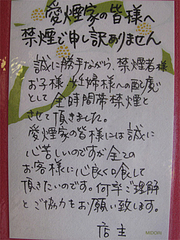 愛煙家の皆様へ
禁煙で申し訳ありません
誠に勝手ながら、禁煙者様
お子様、妊婦様への配慮
として全時間帯禁煙と
させて頂きました。
愛煙家の皆様には誠に
心苦しいのですが全ての
お客様に心良くの食して
頂きたいのです。何卒ご理解
とご協力をお願い致します。
店主